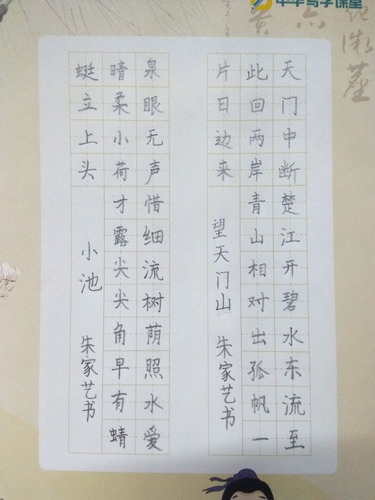 中华写字课堂
天门中断楚江开碧水东流至
此回两岸青山相对出孤帆一
片日边来
望天门山 朱家艺书
泉眼无声惜细流树荫照水爱
晴柔小荷才露尖尖角早有蜻
蜓立上头
小池 朱家艺书